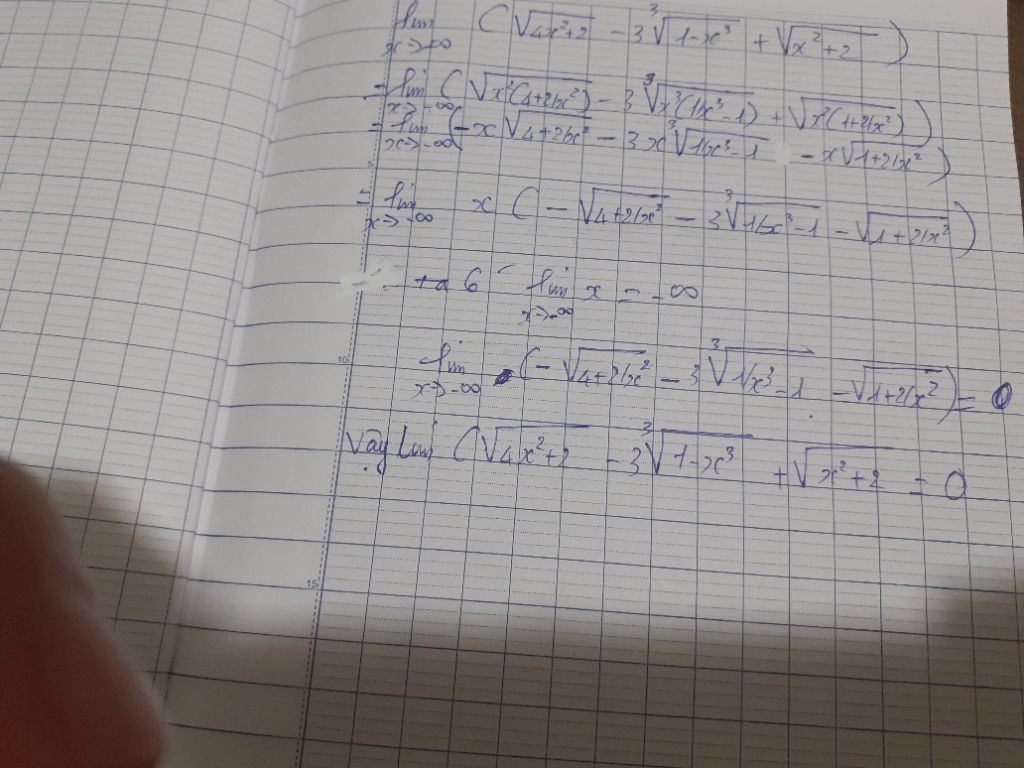 lim x→-∞ (√(4x²+2) - 3∛(1-x³) + √(x²+2))
= lim x→-∞ (√(x²(4+2/x²)) - 3∛(x³(1/x³-1)) + √(x²(1+2/x²)))
= lim x→-∞ (-x√(4+2/x²) - 3x∛(1/x³-1) - x√(1+2/x²))
= lim x→-∞ x (-√(4+2/x²) - 3∛(1/x³-1) - √(1+2/x²))
ta có lim x→-∞ x = -∞
lim x→-∞ (-√(4+2/x²) - 3∛(1/x³-1) - √(1+2/x²)) = 0
Vậy lim (√(4x²+2) - 3∛(1-x³) + √(x²+2) = 0
10
15